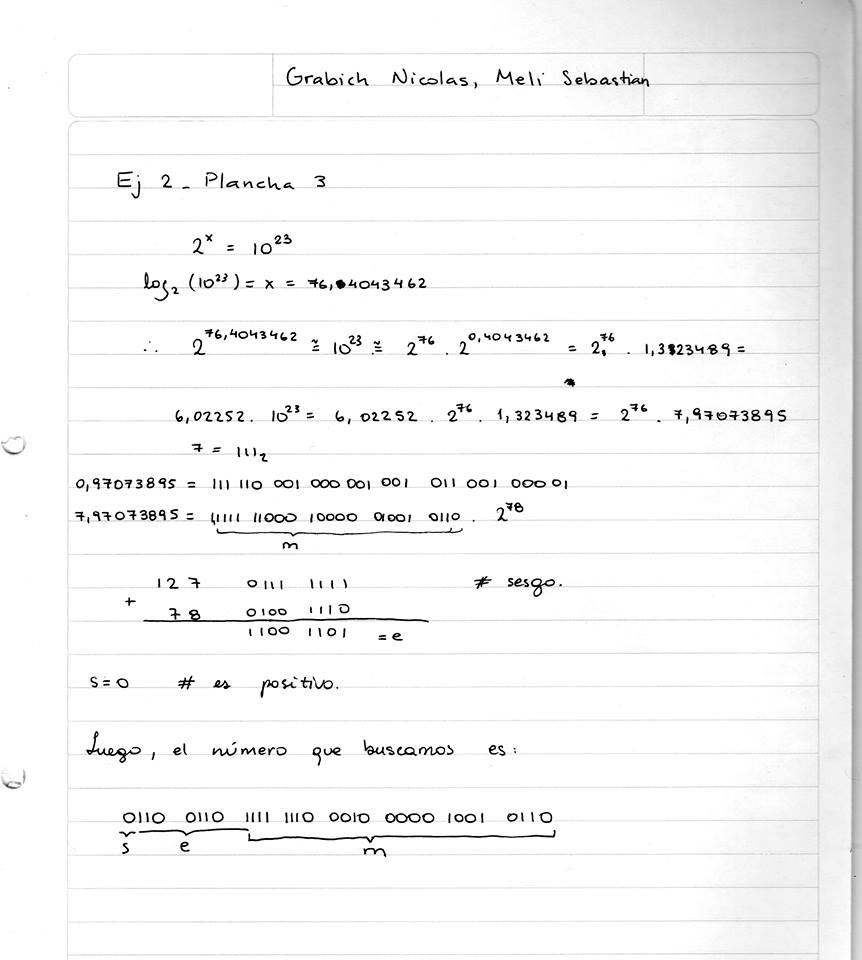 Grabich Nicolas, Meli Sebastian
Ej 2 - Plancha 3
2^x = 10^23
log₂ (10^23) = x = 76,4043462
∴ 2^76,4043462 ≅ 10^23 ≅ 2^76 . 2^0,4043462 = 2^76 . 1,323489 =
6,02252 . 10^23 = 6,02252 . 2^76 . 1,323489 = 2^76 . 7,97073895
7 = 111₂
0,97073895 = 111 110 001 000 001 001 011 001 000 01
7,97073895 = 1,1111 11000 10000 01001 0110 . 2^78
m
127 0111 1111 # sesgo.
+
78 0100 1110
1100 1101 = e
s=0 # es positivo.
Luego, el número que buscamos es:
0110 0110 1111 1110 0010 0000 1001 0110
s e m